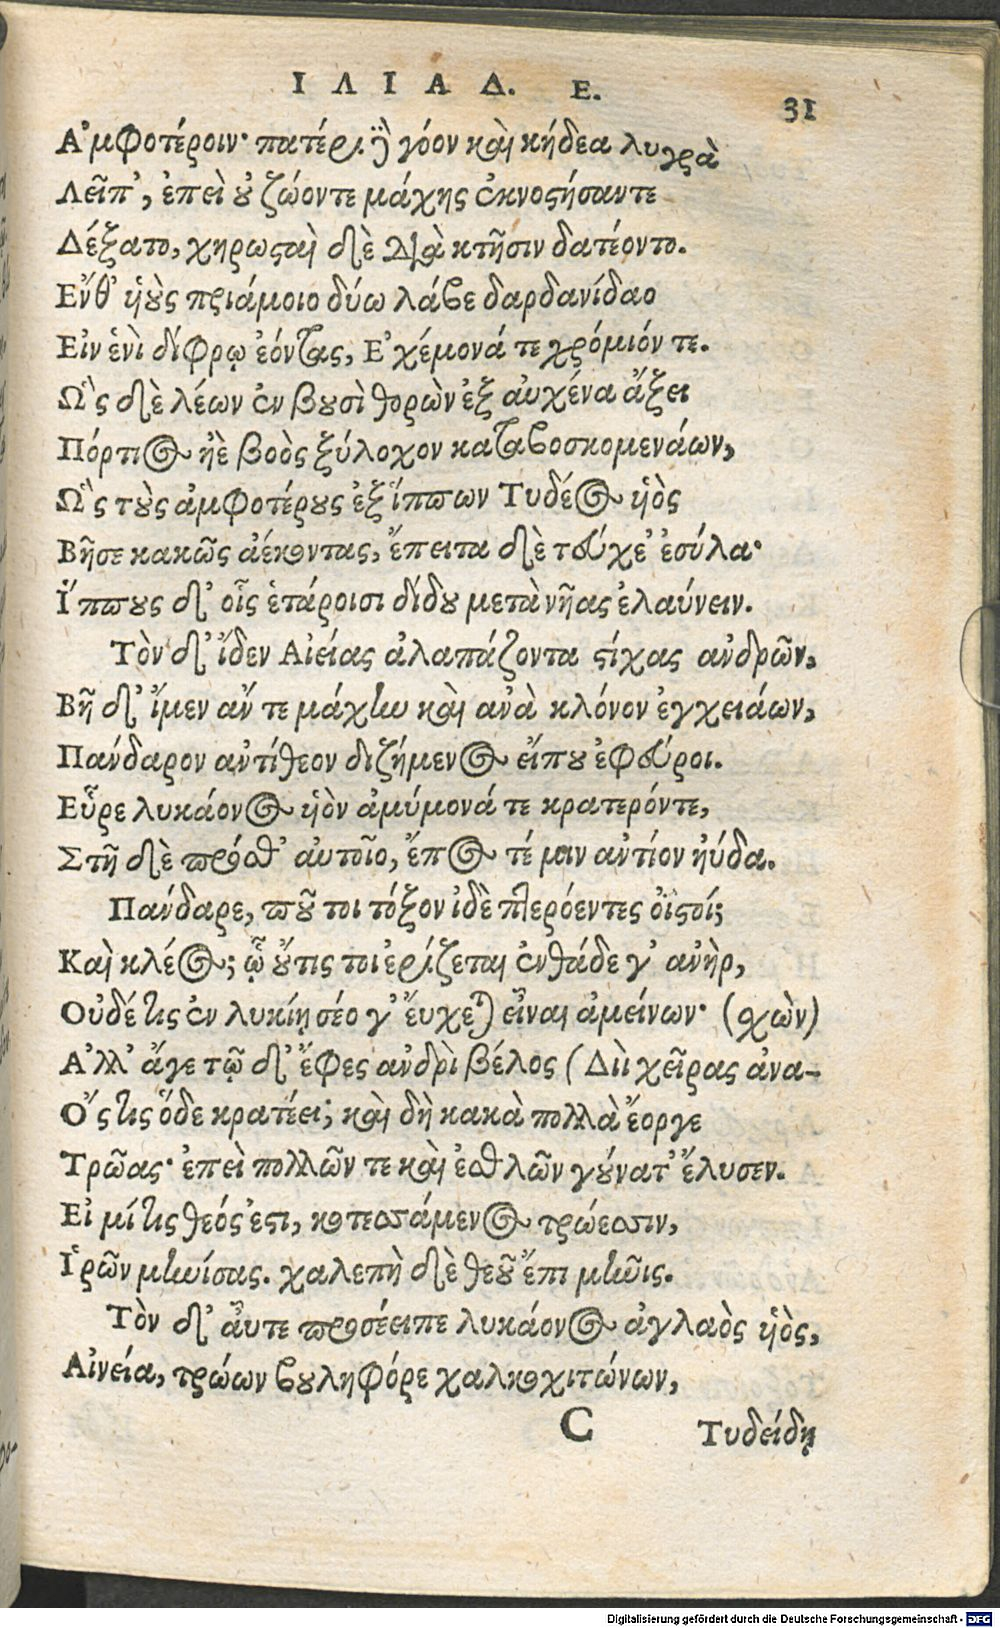 ΙΛΙΑΔ. Ε. 31
Ἀμφοτέροιν· πατέρι δὲ γόον καὶ κήδεα λυγρὰ
Λεῖπ', ἐπεὶ οὐ ζώοντε μάχης ἐκνοστήσαντε
Δέξατο, χηρωσταὶ δὲ διὰ κτῆσιν δατέοντο.
Ἔνθ' υἱοὺς πριάμοιο δύω λάβε δαρδανίδαο
Εἰν ἑνὶ δίφρῳ ἐόντας, Ἐχέμονά τε χρόμιόν τε.
Ὣς δὲ λέων ἐν βουσὶ θορὼν ἐξ αὐχένα ἄξει
Πόρτιος ἠὲ βοὸς ξύλοχον καταβοσκομενάων,
Ὣς τοὺς ἀμφοτέρους ἐξ ἵππων Τυδέος υἱὸς
Βῆσε κακῶς ἀέκοντας, ἔπειτα δὲ τεύχε' ἐσύλα·
Ἵππους δ' οἷς ἑτάροισι δίδου μετὰ νῆας ἐλαύνειν.
Τὸν δ' ἴδεν Αἰείας ἀλαπάζοντα στίχας ἀνδρῶν,
Βῆ δ' ἴμεν ἄν τε μάχην καὶ ἀνὰ κλόνον ἐγχειάων,
Πάνδαρον ἀντίθεον διζήμενος εἴπου ἐφεύροι.
Εὗρε λυκάονος υἱὸν ἀμύμονά τε κρατερόντε,
Στῆ δὲ πρόσθ' αὐτοῖο, ἔπος τέ μιν ἀντίον ηὔδα.
Πάνδαρε, ποῦ τοι τόξον ἰδὲ πτερόεντες ὀϊστοί;
Καὶ κλέος; ᾧ οὔτις τοι ἐρίζεται ἐνθάδε γ' ἀνὴρ,
Οὐδέ τις ἐν λυκίῃ σέο γ' εὔχεται εἶναι ἀμείνων· (σχὼν)
Ἀλλ' ἄγε τῷ δ' ἔφες ἀνδρὶ βέλος (Διὶ χεῖρας ἀνα-
Ὅς τις ὅδε κρατέει; καὶ δὴ κακὰ πολλὰ ἔοργε
Τρῶας· ἐπεὶ πολλῶν τε καὶ ἐσθλῶν γούνατ' ἔλυσεν.
Εἰ μή τις θεός ἐστι, κοτεσσάμενος τρώεσσιν,
Ἱρῶν μηνίσας. χαλεπὴ δὲ θεοῦ ἔπι μῆνις.
Τὸν δ' αὖτε προσέειπε λυκάονος ἀγλαὸς υἱὸς,
Αἰνεία, τρώων βουληφόρε χαλκοχιτώνων,
C Τυδείδῃ
Digitalisierung gefördert durch die Deutsche Forschungsgemeinschaft - DFG